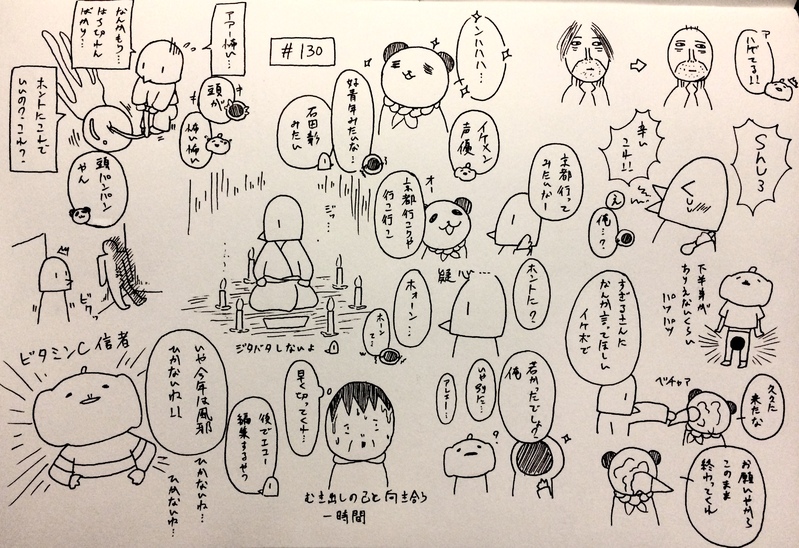 アアー怖い…
なんかもう…
はち切れん
ばかり…
ホントにこれで
いいの?これ?
頭が…
怖い怖い
頭パンパン
やん
ビクっ
#130
ンハハハ…
好青年みたいな!
石田彰
みたい
イケメン
声優
ア
ハゲてる!!
Shし3
辛い
これ!!
え
俺…?
京都行って
みたいなー
オー
京都行こうや
行こ行こ
ジッ…
ジタバタしないよ
ホントに?
ウォーン…
ホーン
て…
すぎるさんに
なんか言ってほしい
イケボで
下半身が
ありえないくらい
パツパツ
ビタミンC信者
いや今年は風邪
ひかないね!!
ひかないね…
ひかないね…
早く切ってくれ…
後でエコー
編集するやつ
むき出しの己と向き合う
一時間
若かったでしょ?
俺
いや別に…
アレェー…
?
ベチャァ
久々に
来たな
お願いやから
このまま
終わってくれ